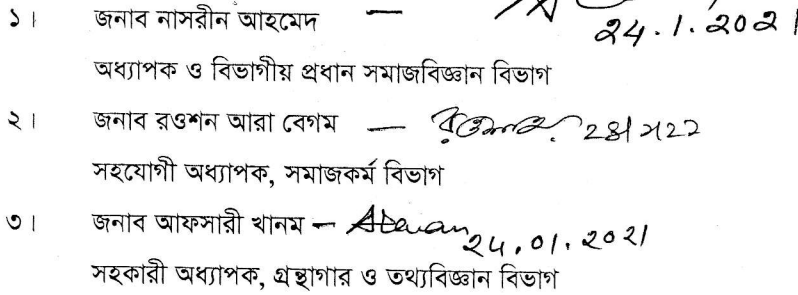 ১। জনাব নাসরীন আহমেদ — 24.1.2021
অধ্যাপক ও বিভাগীয় প্রধান সমাজবিজ্ঞান বিভাগ
২। জনাব রওশন আরা বেগম —
সহযোগী অধ্যাপক, সমাজকর্ম বিভাগ
৩। জনাব আফসারী খানম — 24.01.2021
সহকারী অধ্যাপক, গ্রন্থাগার ও তথ্যবিজ্ঞান বিভাগ